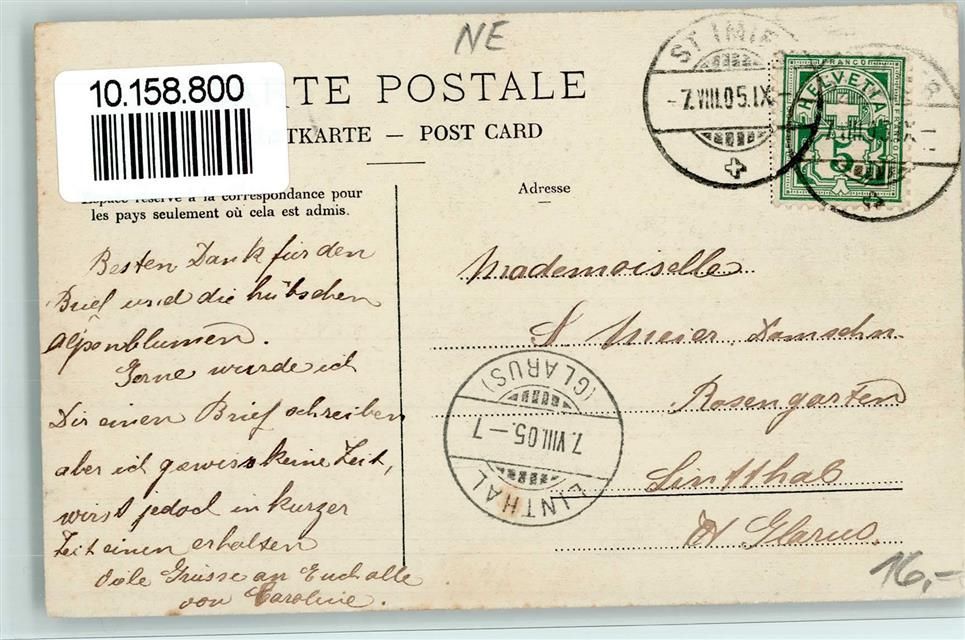 NE
10.158.800
TE POSTALE
TKARTE — POST CARD
Espace réservé à la correspondance pour
les pays seulement où cela est admis.
Adresse
ST IMIER
-7.VIII.05.IX
HELVETIA
FRANCO
5
Besten Dank für den
Brief und die hübschen
Alpenblumen.
Gerne würde ich
Dir einen Brief schreiben
aber ich gewiss keine Zeit,
wirst jedoch in kurzer
Zeit einen erhalten
Viele Grüsse an Euch alle
von Caroline.
Mademoiselle
S. Meier
Rosengarten
Lintthal
Ct Glarus.
(GLARUS)
7.VIII.05.-7
LINTHAL
16,-